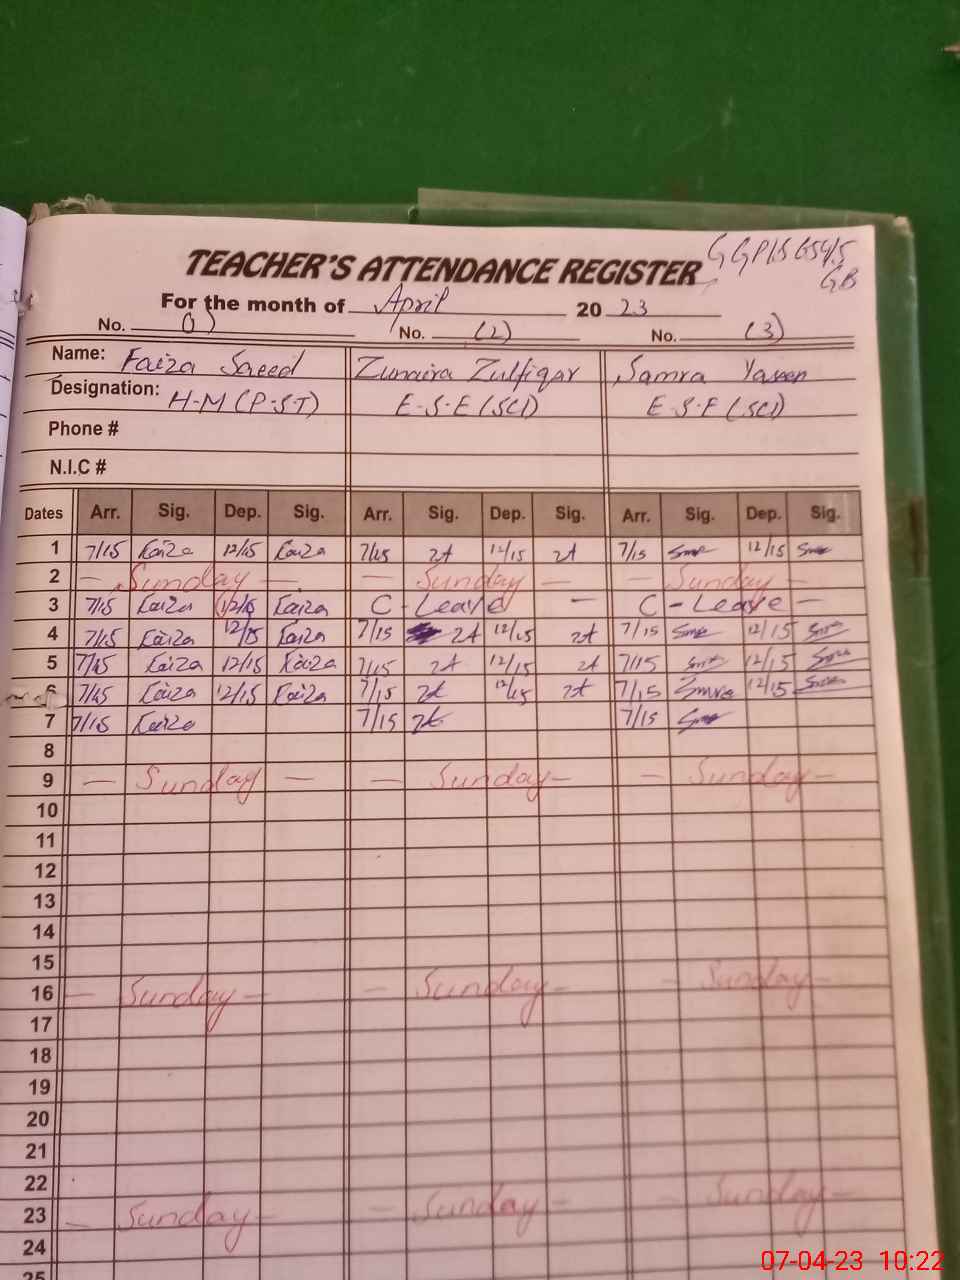 TEACHER'S ATTENDANCE REGISTER
For the month of April 2023
No. (1) No. (2) No. (3)
Name: Faiza Saeed Zunaira Zulfiqar Samra Yaseen
Designation: H-M (P.S.T) E-S-E (SCI) E-S-E (SCI)
Phone #
N.I.C #
Dates Arr. Sig. Dep. Sig. Arr. Sig. Dep. Sig. Arr. Sig. Dep. Sig.
1 7/15 Faiza 12/15 Faiza 7/15 ZA 12/15 ZA 7/15 12/15
2 — Sunday — — Sunday — — Sunday —
3 7/15 Faiza 12/15 Faiza C - Leave — C - Leave —
4 7/15 Faiza 12/15 Faiza 7/15 ZA 12/15 ZA 7/15 12/15
5 7/15 Faiza 12/15 Faiza 7/15 ZA 12/15 ZA 7/15 12/15
6 7/15 Faiza 12/15 Faiza 7/15 ZA 12/15 ZA 7/15 12/15
7 7/15 Faiza 7/15 ZA 7/15
8
9 — Sunday — — Sunday — — Sunday —
10
11
12
13
14
15
16 — Sunday — — Sunday — — Sunday —
17
18
19
20
21
22
23 — Sunday — — Sunday — — Sunday —
24
25
07-04-23 10:22